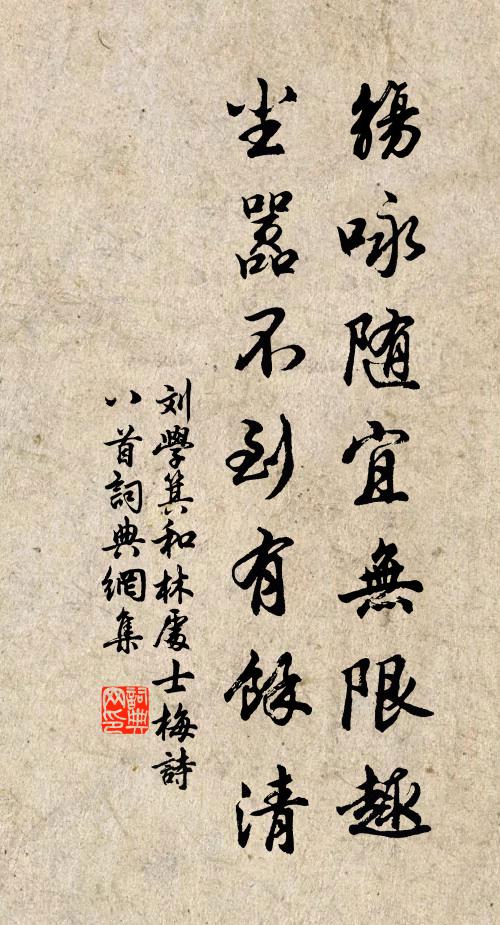 觴咏随宜無限趣
尘嚣不到有餘清
刘學箕和林處士梅詩
八首詞典網集
詞典网印